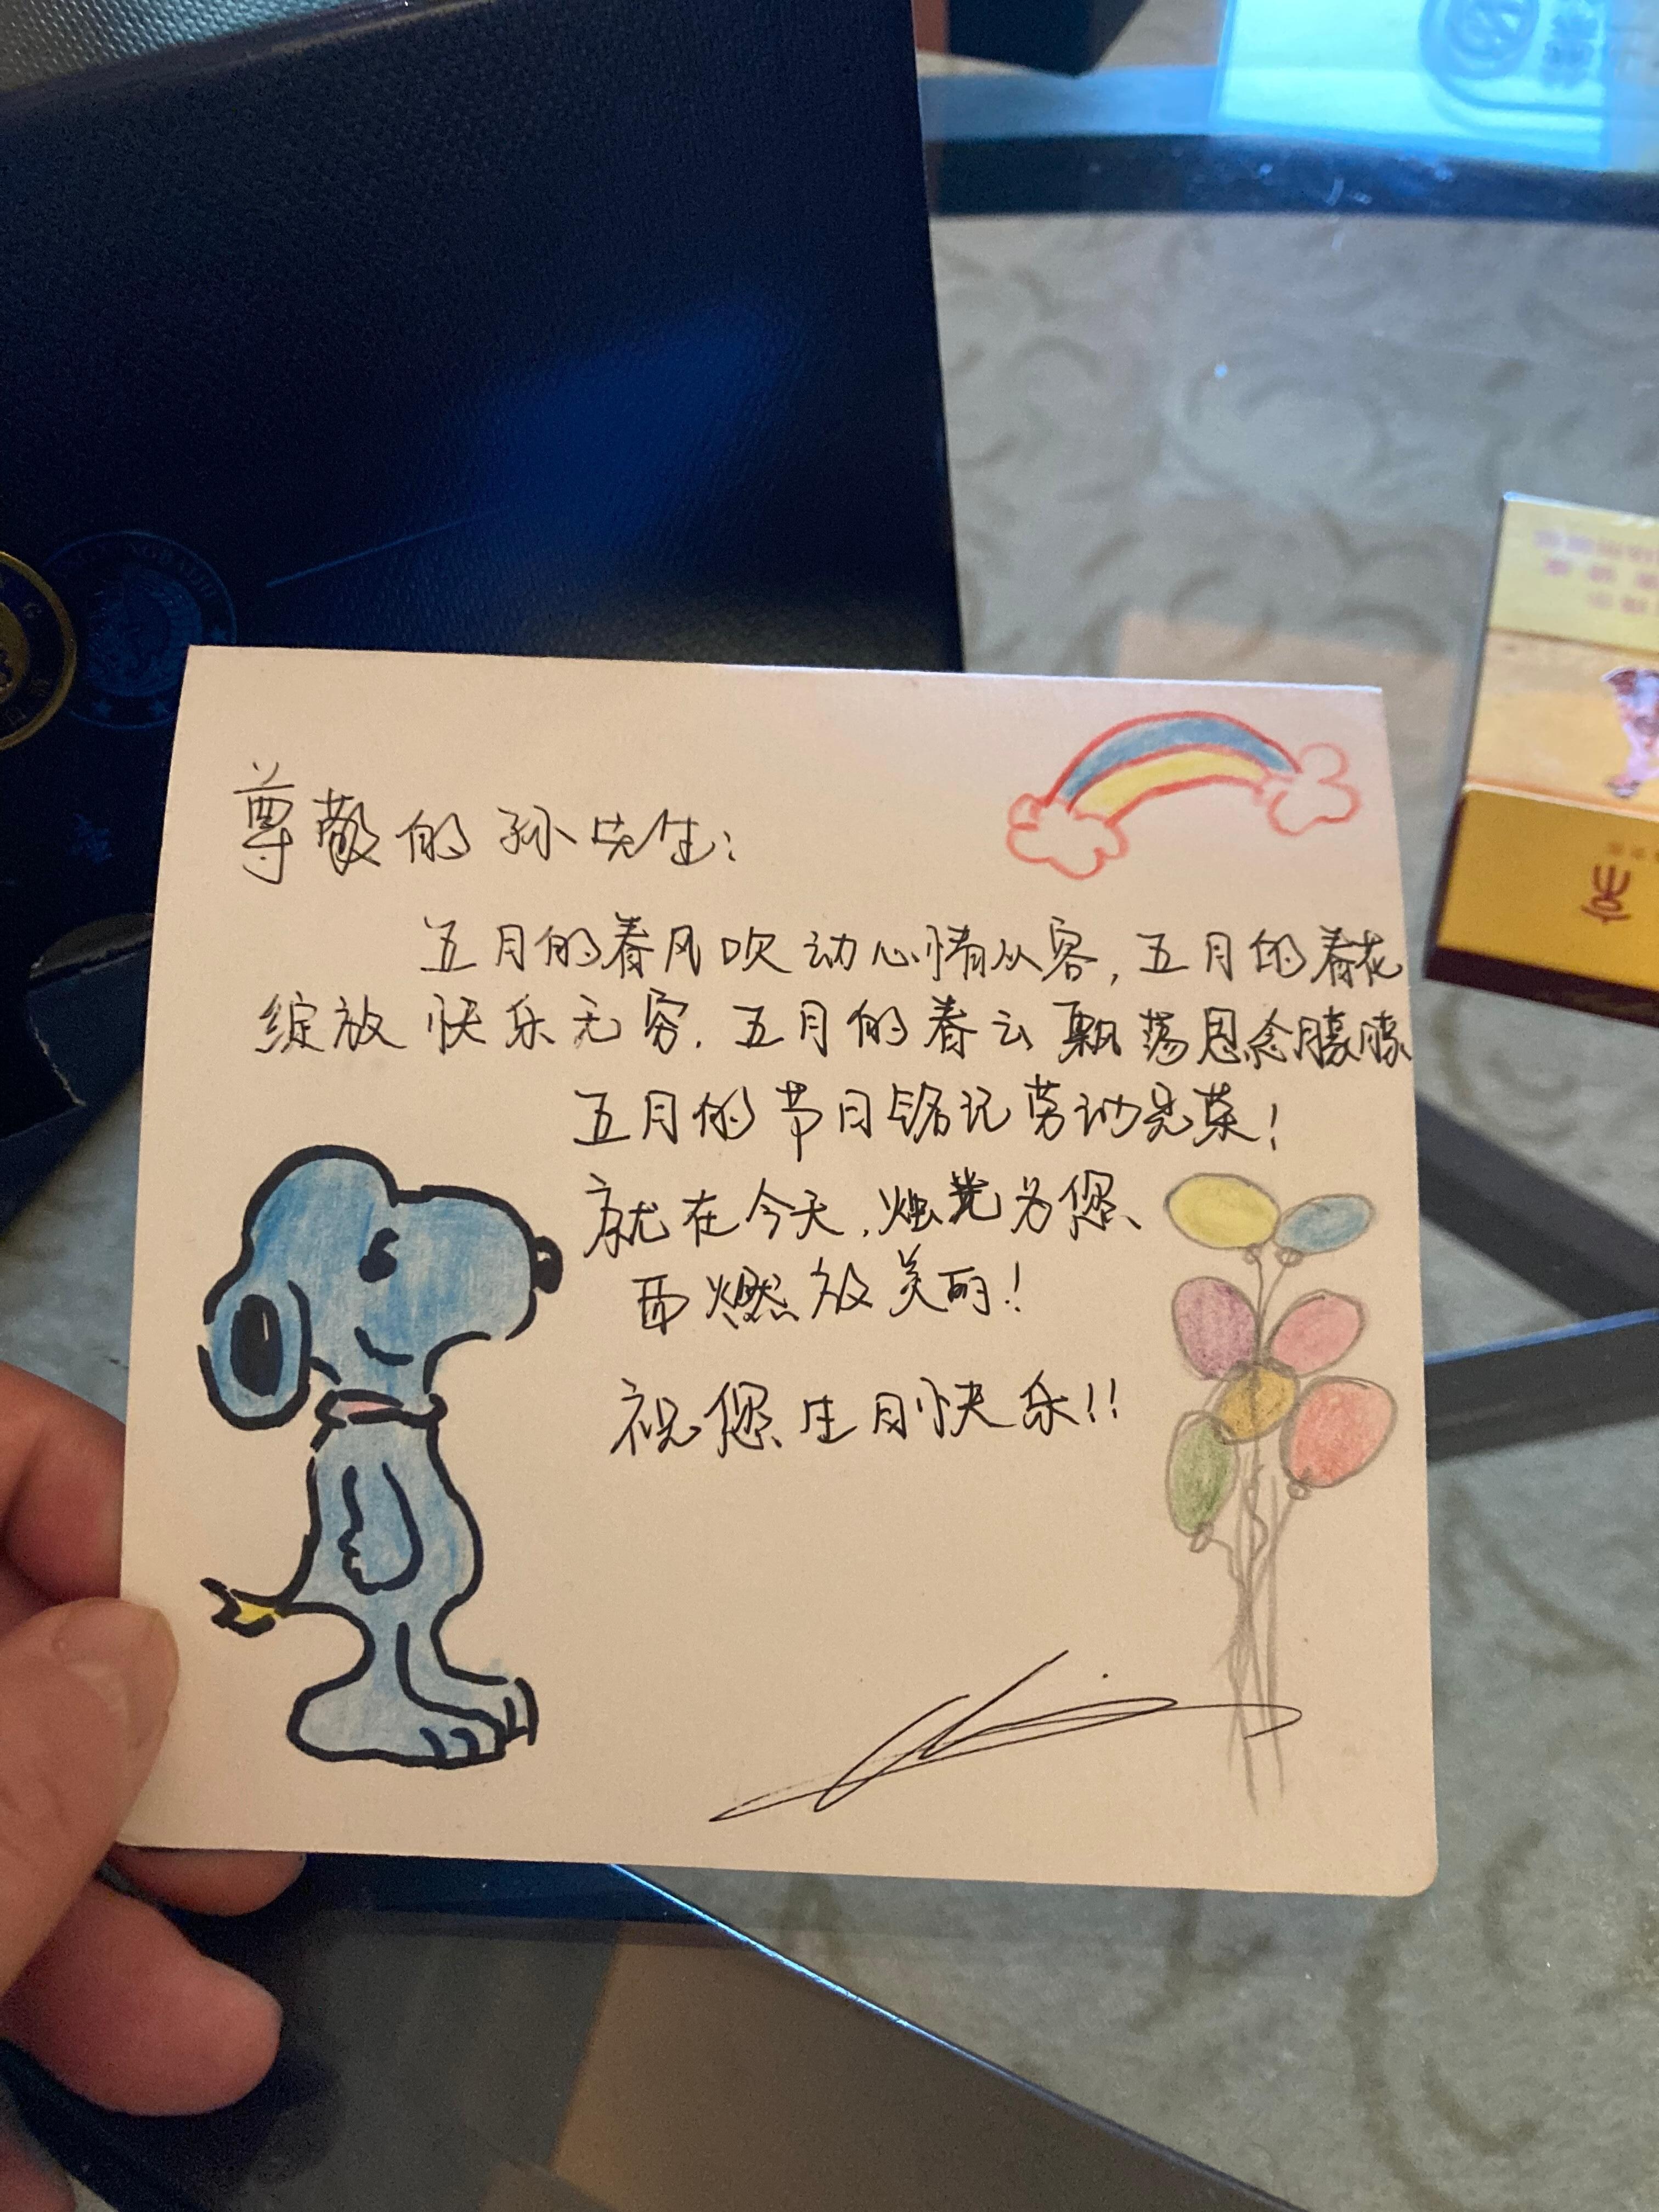 尊敬的孙先生：
五月的春风吹动心情从容，五月的春花
绽放快乐无穷．五月的春云飘荡思念朦朦
五月的节日铭记劳动光荣！
就在今天，烛光为您
而燃放美丽！
祝您生日快乐！！